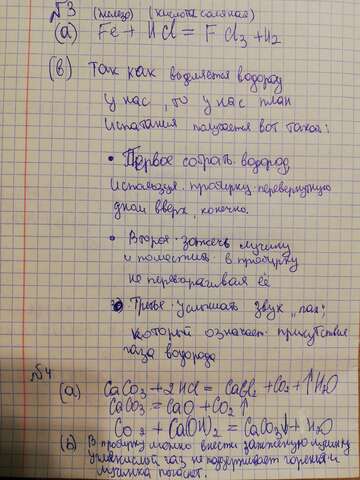 №3 (железо) (кислота соляная)
(а) Fe + HCl = FCl₃ + H₂
(в) Так как выделяется водород
у нас, то у нас план
испытания получается вот такой:
• Первое собрать водород
используя пробирку перевернутую
дном вверх, конечно.
• Второе зажечь лучину
и поместить в пробирку
не переворачивая её
Третье услышать звук „пах",
который означает присутствие
газа водорода
№4
(а) CaCO₃ + 2HCl = CaCl₂ + CO₂ + ↑H₂O
CaCO₃ = CaO + CO₂↑
CO₂ + Ca(OH)₂ = CaCO₃↓ + H₂O
(в) В пробирку можно внести зажженную лучинку
углекислый газ не поддерживает горения и
лучинка погаснет.